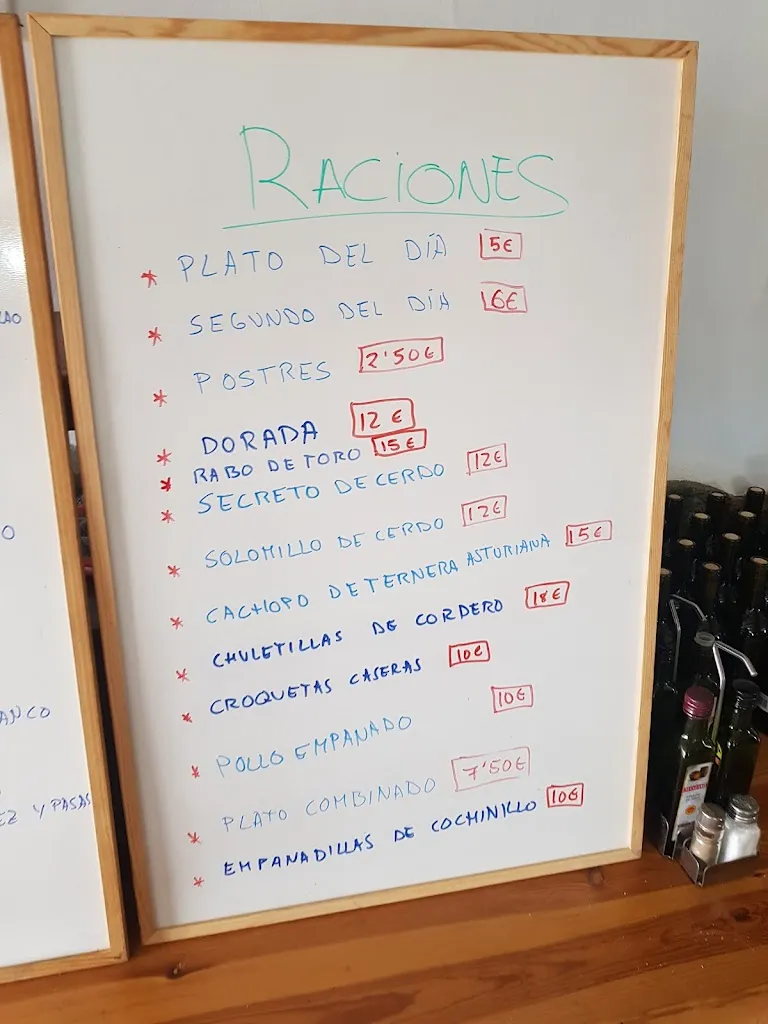 RACIONES
* PLATO DEL DÍA 5€
* SEGUNDO DEL DÍA 6€
* POSTRES 2'50€
* DORADA 12 €
* RABO DE TORO 15€
* SECRETO DE CERDO 12€
* SOLOMILLO DE CERDO 12€
* CACHOPO DE TERNERA ASTURIANA 15€
* CHULETILLAS DE CORDERO 18€
* CROQUETAS CASERAS 10€
* POLLO EMPANADO 10€
* PLATO COMBINADO 7'50€
* EMPANADILLAS DE COCHINILLO 10€
Y PASAS